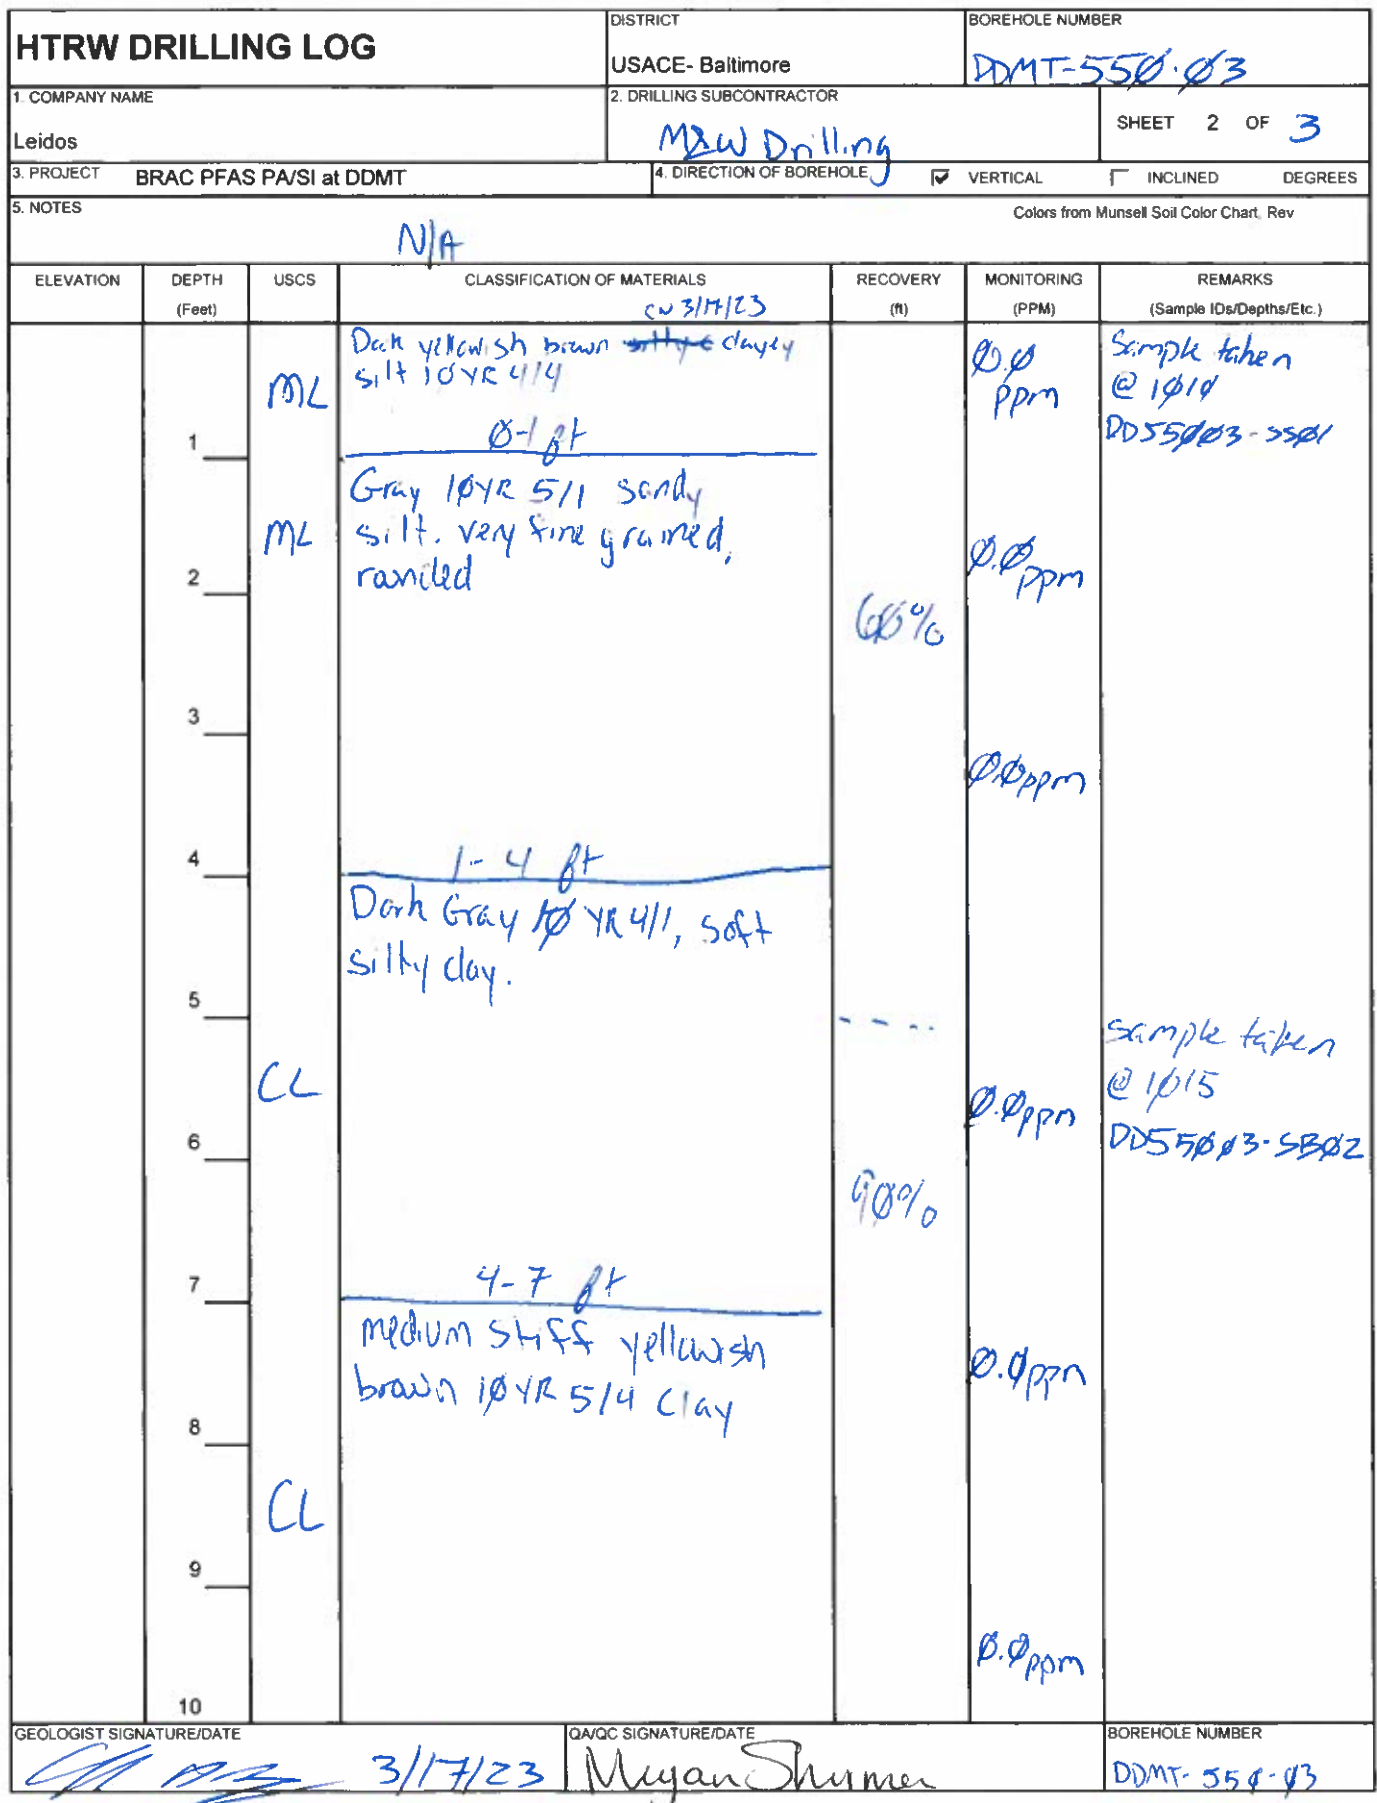 HTRW DRILLING LOG
DISTRICT
USACE- Baltimore
BOREHOLE NUMBER
DDMT-55Ø-Ø3
1. COMPANY NAME
Leidos
2. DRILLING SUBCONTRACTOR
M&W Drilling
SHEET 2 OF 3
3. PROJECT BRAC PFAS PA/SI at DDMT
4. DIRECTION OF BOREHOLE VERTICAL INCLINED DEGREES
5. NOTES
N/A
Colors from Munsell Soil Color Chart, Rev
ELEVATION
DEPTH
(Feet)
USCS
CLASSIFICATION OF MATERIALS
CW 3/17/23
RECOVERY
(ft)
MONITORING
(PPM)
REMARKS
(Sample IDs/Depths/Etc.)
ML
Dark yellowish brown clayey
silt 10YR 4/4
Ø-1 ft
Ø.Ø
ppm
Sample taken
@ 1Ø1Ø
DD55ØØ3-SSØ1
1
ML
Gray 1ØYR 5/1 sandy
silt. very fine grained,
rounded
Ø.Ø ppm
2
60%
3
Ø.Øppm
4
1-4 ft
Dark Gray 1Ø YR 4/1, soft
silty clay.
5
CL
Ø.Øppm
Sample taken
@ 1Ø15
DD55ØØ3-SBØ2
6
9Ø%
7
4-7 ft
medium stiff yellowish
brown 1Ø YR 5/4 Clay
Ø.Øppm
8
CL
9
Ø.Øppm
10
GEOLOGIST SIGNATURE/DATE
3/17/23
QA/QC SIGNATURE/DATE
BOREHOLE NUMBER
DDMT-55Ø-Ø3